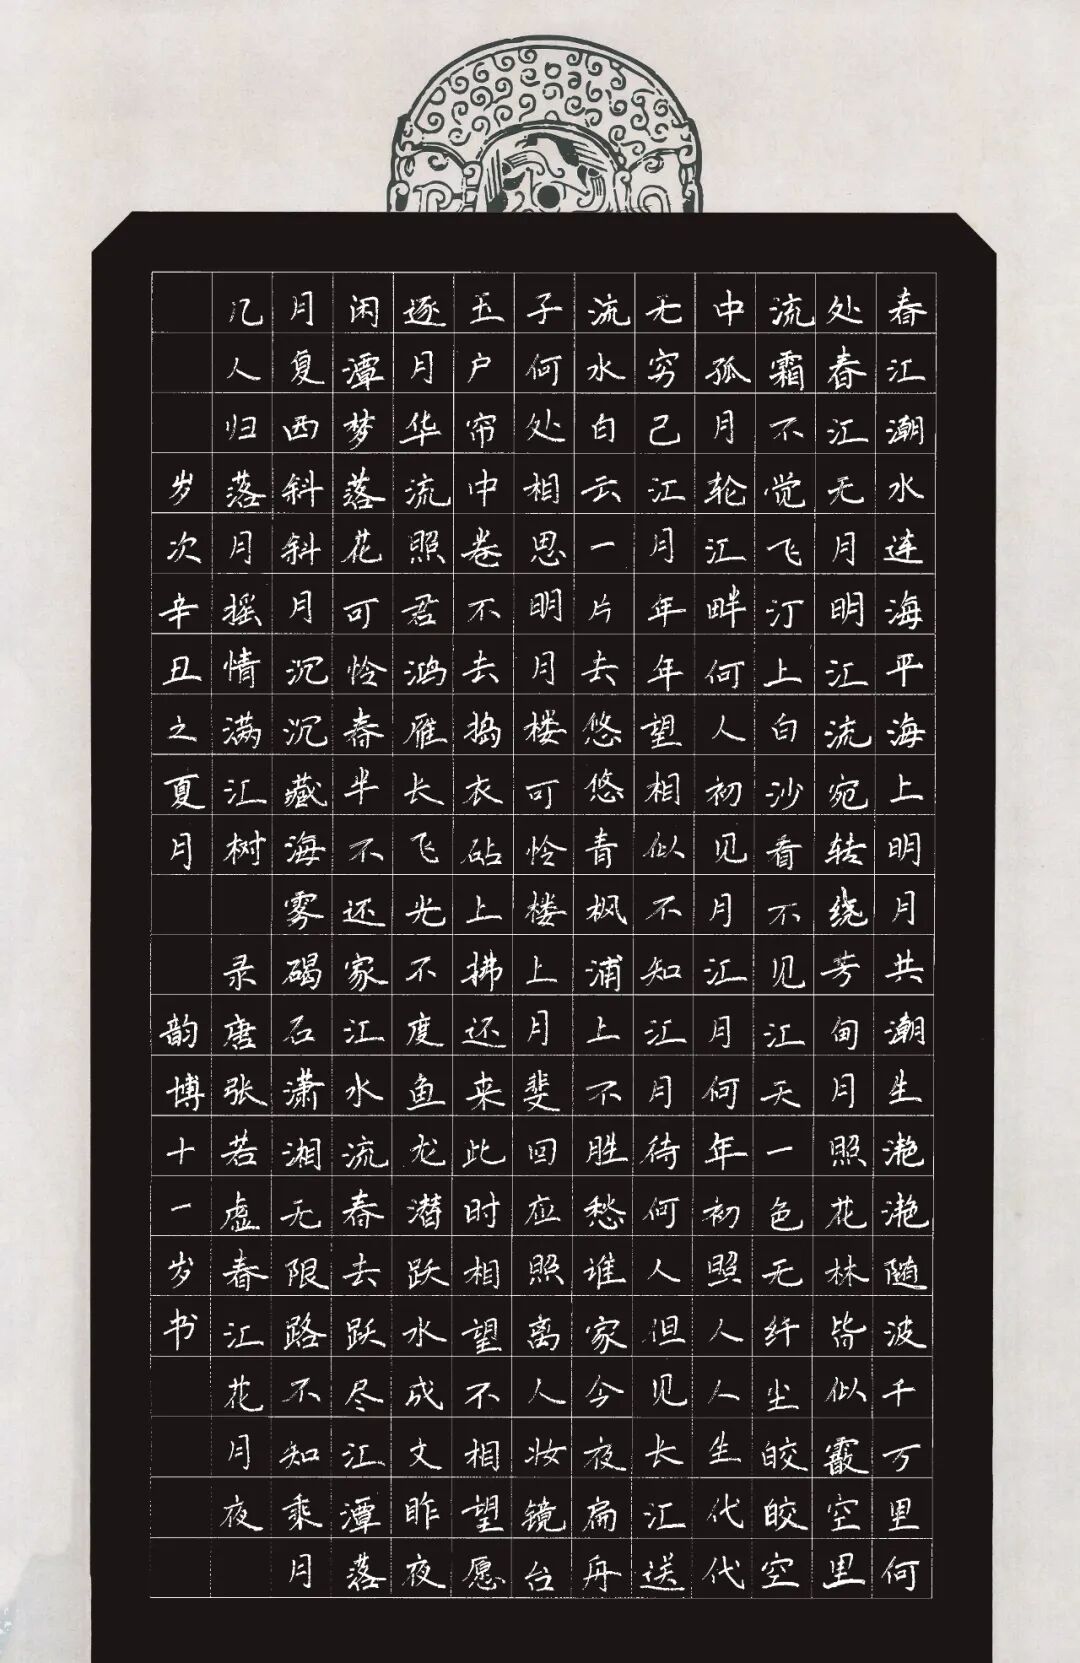 春江潮水连海平海上明月共潮生滟滟随波千万里何
处春江无月明江流宛转绕芳甸月照花林皆似霰空里
流霜不觉飞汀上白沙看不见江天一色无纤尘皎皎空
中孤月轮江畔何人初见月江月何年初照人人生代代
无穷己江月年年望相似不知江月待何人但见长江送
流水白云一片去悠悠青枫浦上不胜愁谁家今夜扁舟
子何处相思明月楼可怜楼上月斐回应照离人妆镜台
玉户帘中卷不去捣衣砧上拂还来此时相望不相望愿
逐月华流照君鸿雁长飞光不度鱼龙潜跃水成文昨夜
闲潭梦落花可怜春半不还家江水流春去跃尽江潭落
月复西斜斜月沉沉藏海雾碣石潇湘无限路不知乘月
几人归落月摇情满江树 录唐张若虚春江花月夜
岁次辛丑之夏月 韵博十一岁书